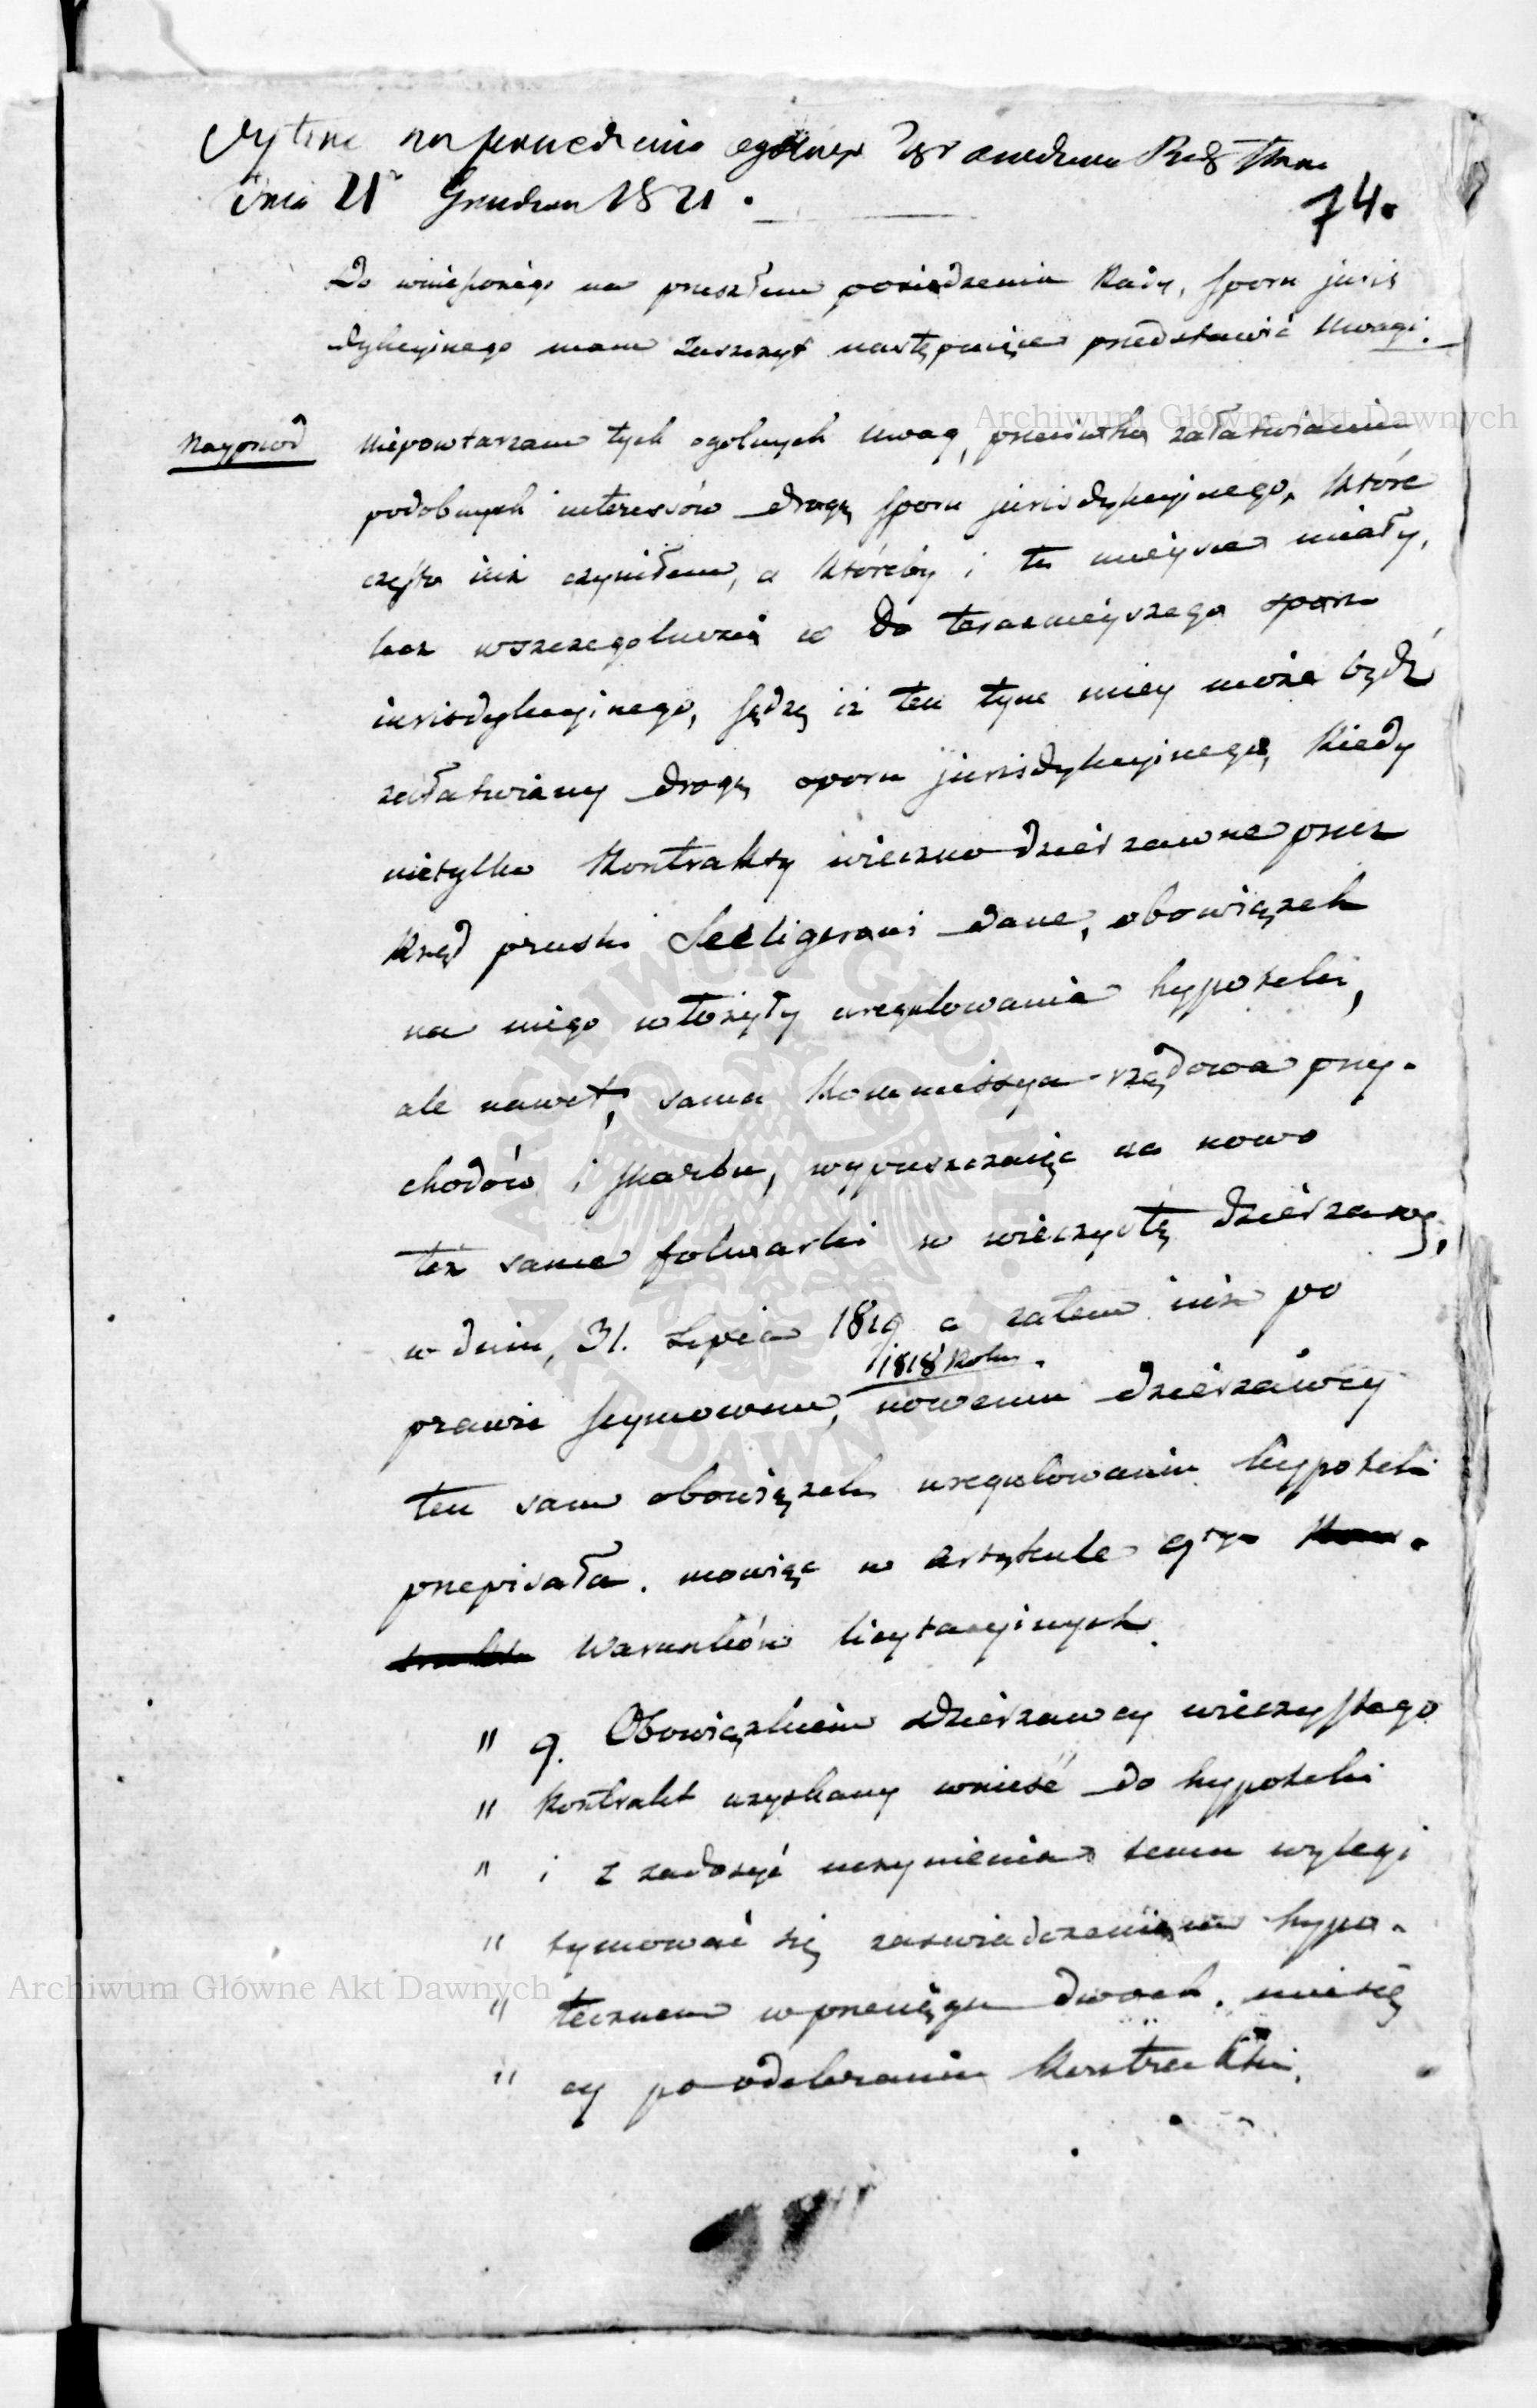 Czytane na posiedzeniu ogólnem Zgromadzenia Rady Stanu
Dnia 21° Grudnia 1821.
74.
Do wniesionego na przeszłem posiedzeniu Rady, sporu juris
dykcyinego mam zaszczyt następuiące przedstawić Uwagi.
Nayprzod niepowtarzam tych ogolnych uwag, przeciwko załatwianiu
podobnych interessów drogą sporu jurisdykcyinego, które
często iuż czyniłem, a któreby i tu mieysce miały,
lecz wszczegolności co do teraznieyszego sporu
iurisdykcyinego, sądzę iż ten tym mniey może bydź
załatwiany drogą sporu jurisdykcyinego, kiedy
nietylko kontrakty wieczno-dzierzawne przez
Rząd pruski Seeligerowi dane, obowiązek
na niego włożyły uregulowania hypoteki,
ale nawet, sama Kommissya rządowa przy-
chodów i skarbu, wypuszczaiąc na nowo
też same folwarki w wieczystą dzierzawę,
w dniu, 31. Lipca 1819 a zatem iuż po
prawie seymowem, 1818 Roku. nowemu dzierzawcy
ten sam obowiązek uregulowania hypoteki
przepisała. mowiąc w Artykule 9tym Kon-
traktu Warunków licytacyinych.
" 9. Obowiązkiem dzierzawcy wieczystego
" kontrakt uzyskany wnieść do hypoteki
" i z zadosyć uczynienia temu wylegi
" tymować się zaswiadczeniem hypo-
" tecznem wprzeciągu dwoch. miesię
" cy po odebraniu kontraktu.
Archiwum Główne Akt Dawnych
Archiwum Główne Akt Dawnych
ARCHIWUM GŁÓWNE AKT DAWNYCH